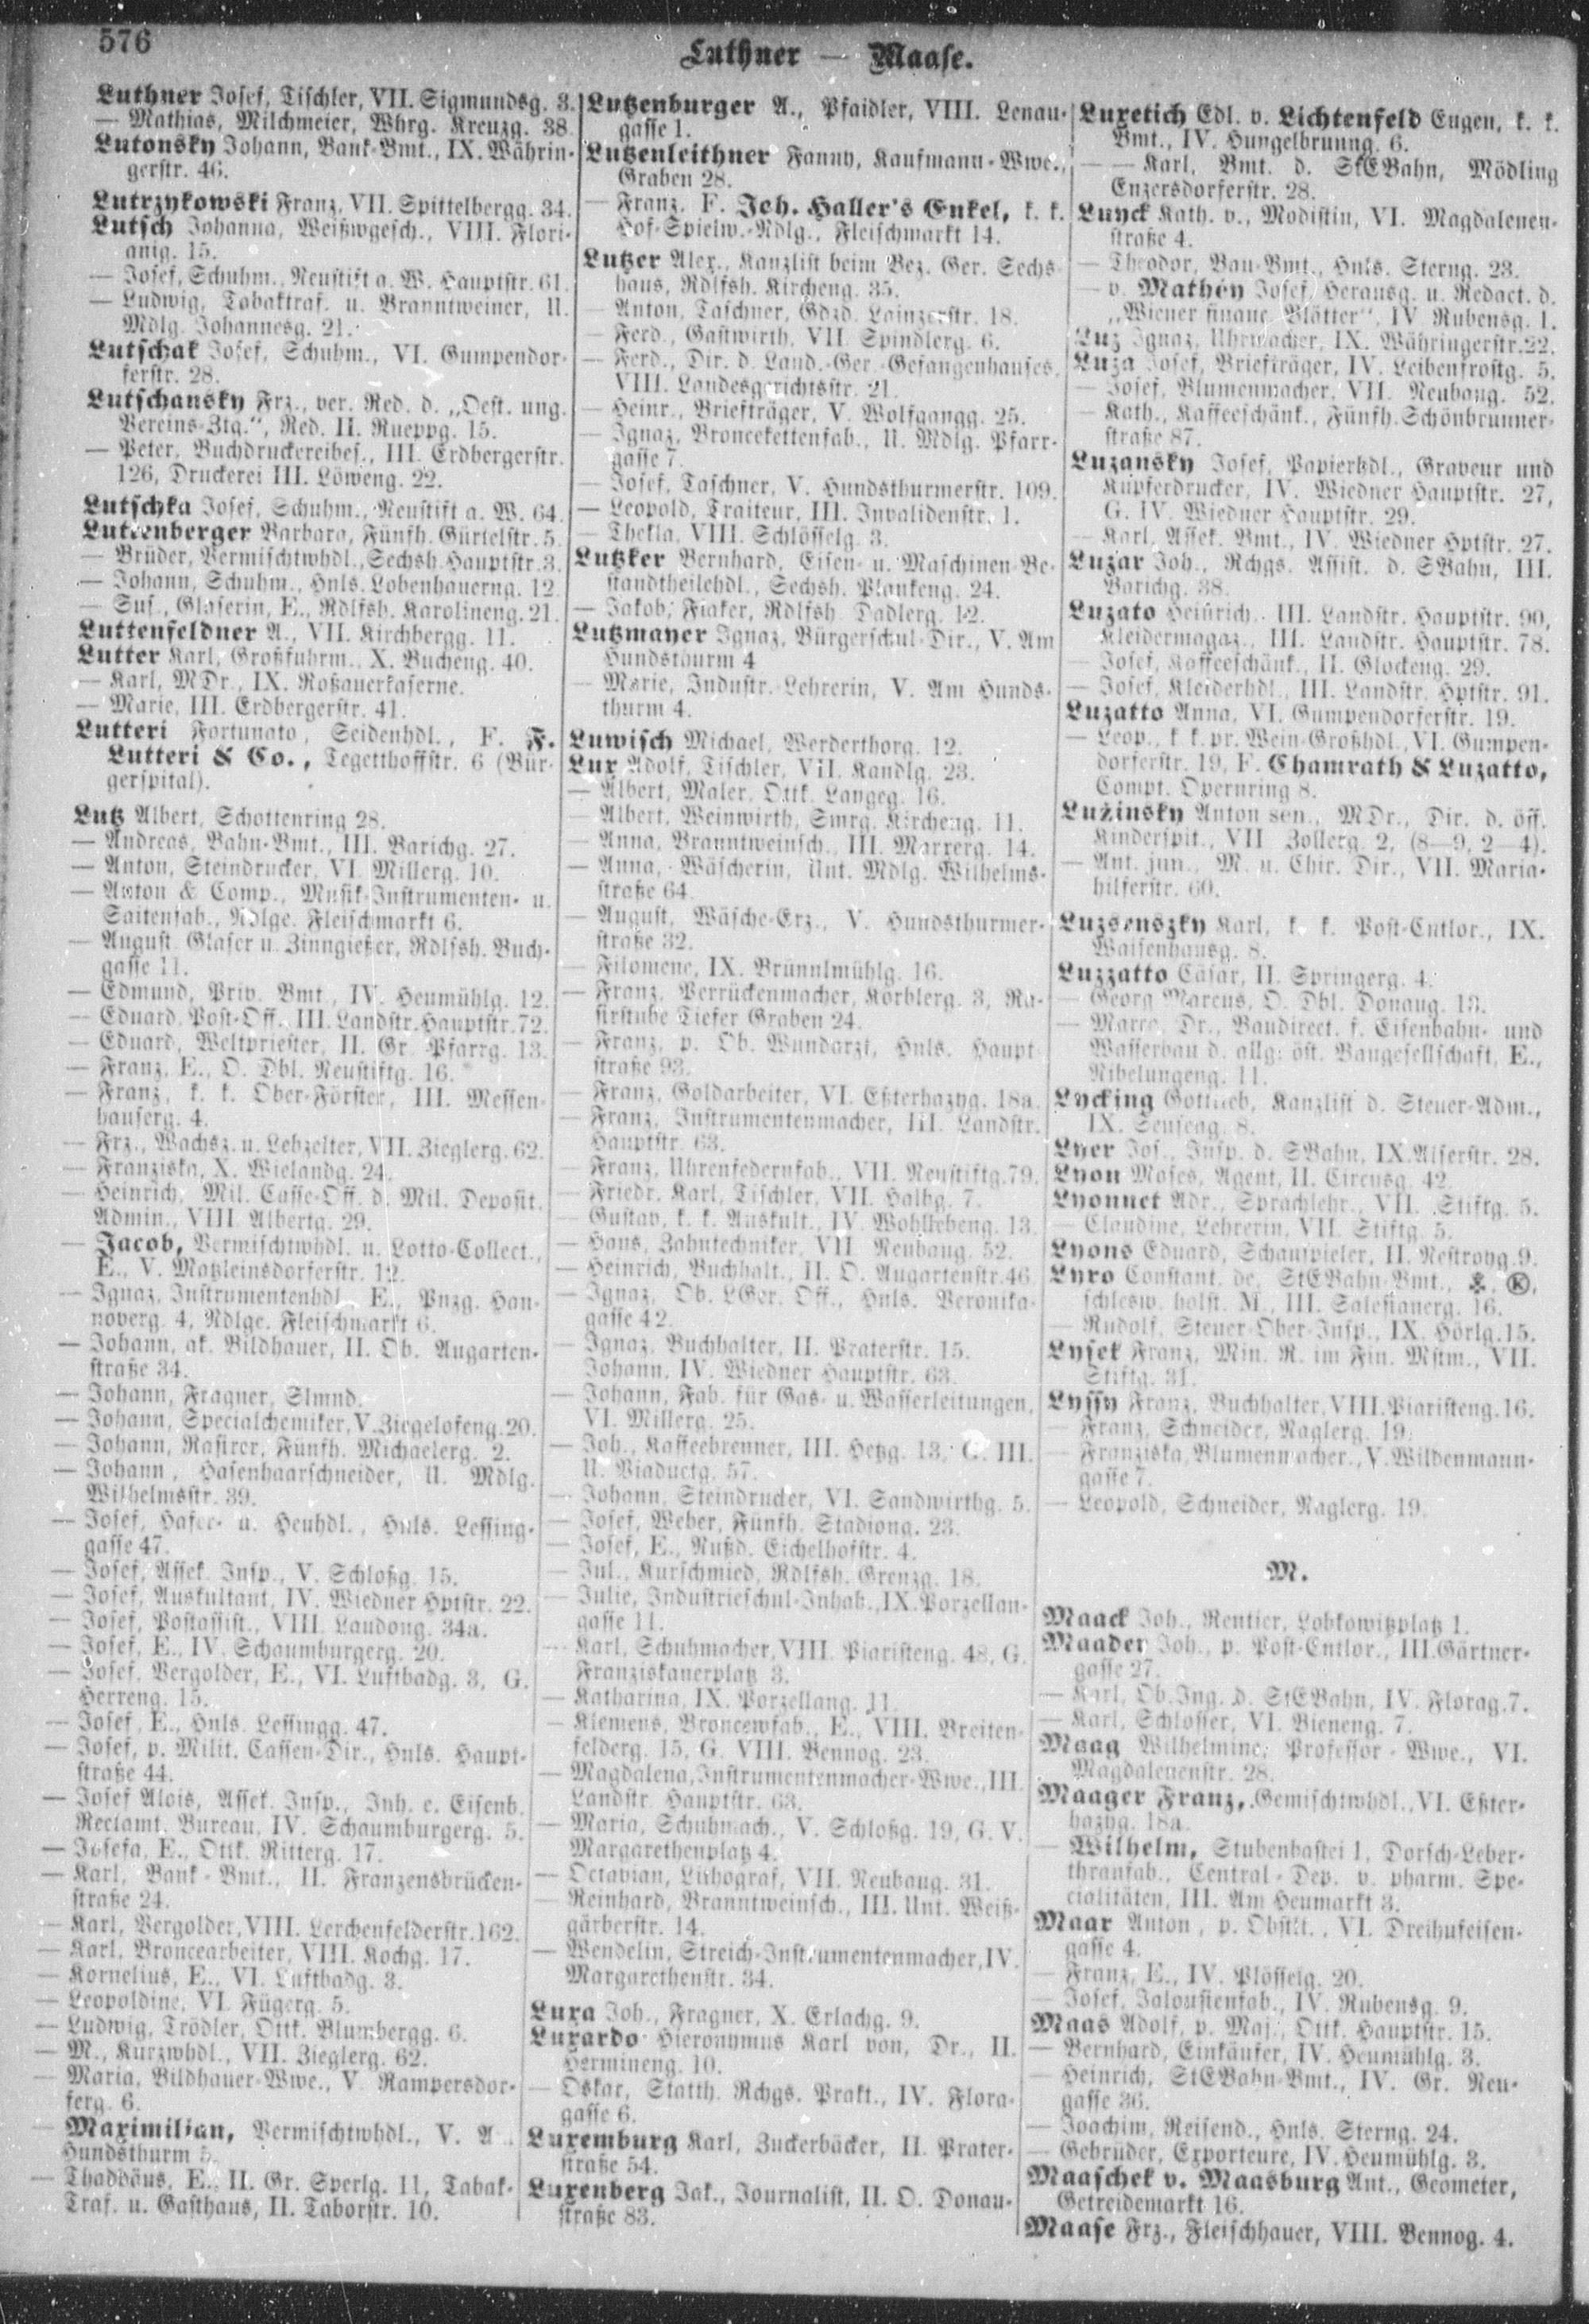 576
Luthner — Maase.
Luthner Josef, Tischler, VII. Sigmundsg. 3.
— Mathias, Milchmeier, Whrg. Kreuzg. 38.
Lutonsky Johann, Bank-Bmt., IX. Währin-
gerstr. 46.
Lutrzykowski Franz, VII. Spittelbergg. 34.
Lutsch Johanna, Weißwgesch., VIII. Flori-
anig. 15.
— Josef, Schuhm., Neustift a. W. Hauptstr. 61.
— Ludwig, Tabaktraf. u. Branntweiner, U.
Mdlg. Johannesg. 21.
Lutschak Josef, Schuhm., VI. Gumpendor-
ferstr. 28.
Lutschansky Frz., ver. Red. d. „Oest. ung.
Vereins-Ztg.“, Red. II. Rueppg. 15.
— Peter, Buchdruckereibes., III. Erdbergerstr.
126, Druckerei III. Löweng. 22.
Lutschka Josef, Schuhm., Neustift a. W. 64.
Luttenberger Barbara, Fünfh. Gürtelstr. 5.
— Brüder, Vermischtwhdl., Sechsh. Hauptstr. 3.
— Johann, Schuhm., Hnls. Lobenhauerng. 12.
— Sus., Glaserin, E., Rdlfsh. Karolineng. 21.
Luttenfeldner A., VII. Kirchbergg. 11.
Lutter Karl, Großfuhrm., X. Bucheng. 40.
— Karl, MDr., IX. Roßauerkaserne.
— Marie, III. Erdbergerstr. 41.
Lutteri Fortunato, Seidenhdl., F. F.
Lutteri & Co., Tegetthoffstr. 6 (Bür-
gerspital).
Lutz Albert, Schottenring 28.
— Andreas, Bahn-Bmt., III. Barichg. 27.
— Anton, Steindrucker, VI. Millerg. 10.
— Anton & Comp., Musik-Instrumenten- u.
Saitenfab., Ndlge. Fleischmarkt 6.
— August, Glaser u. Zinngießer, Rdlfsh. Buch-
gasse 11.
— Edmund, Priv. Bmt., IV. Heumühlg. 12.
— Eduard, Post-Off., III. Landstr. Hauptstr. 72.
— Eduard, Weltpriester, II. Gr. Pfarrg. 13.
— Franz, E., O. Dbl. Neustiftg. 16.
— Franz, k. k. Ober-Förster, III. Messen-
hauserg. 4.
— Frz., Wachsz. u. Lebzelter, VII. Zieglerg. 62.
— Franziska, X. Wielandg. 24.
— Heinrich, Mil. Casse-Off. d. Mil. Deposit.
Admin., VIII. Albertg. 29.
— Jacob, Vermischtwhdl. u. Lotto-Collect.,
E., V. Matzleinsdorferstr. 12.
— Ignaz, Instrumentenhdl., E., Pnzg. Han-
noverg. 4, Ndlge. Fleischmarkt 6.
— Johann, ak. Bildhauer, II. Ob. Augarten-
straße 34.
— Johann, Fragner, Slmnd.
— Johann, Specialchemiker, V. Ziegelofeng. 20.
— Johann, Rasirer, Fünfh. Michaelerg. 2.
— Johann, Hasenhaarschneider, U. Mdlg.
Wilhelmsstr. 39.
— Josef, Hafer- u. Heuhdl., Hnls. Lessing-
gasse 47.
— Josef, Assek. Insp., V. Schloßg. 15.
— Josef, Auskultant, IV. Wiedner Hptstr. 22.
— Josef, Postassist., VIII. Laudong. 34a.
— Josef, E., IV. Schaumburgerg. 20.
— Josef, Vergolder, E., VI. Luftbadg. 3, G.
Herreng. 15.
— Josef, E., Hnls. Lessingg. 47.
— Josef, p. Milit. Cassen-Dir., Hnls. Haupt-
straße 44.
— Josef Alois, Assek. Insp., Inh. e. Eisenb.
Reclamt. Bureau, IV. Schaumburgerg. 5.
— Josefa, E., Ottk. Ritterg. 17.
— Karl, Bank-Bmt., II. Franzensbrücken-
straße 24.
— Karl, Vergolder, VIII. Lerchenfelderstr. 162.
— Karl, Broncearbeiter, VIII. Kochg. 17.
— Kornelius, E., VI. Luftbadg. 3.
— Leopoldine, VI. Fügerg. 5.
— Ludwig, Trödler, Ottk. Blumbergg. 6.
— M., Kurzwhdl., VII. Zieglerg. 62.
— Maria, Bildhauer-Wwe., V. Rampersdor-
ferg. 6.
— Maximilian, Vermischtwhdl., V. A
Hundsthurm 5.
— Thaddäus, E., II. Gr. Sperlg. 11, Tabak-
Traf. u. Gasthaus, II. Taborstr. 10.
Lutzenburger A., Pfaidler, VIII. Lenau-
gasse 1.
Lutzenleithner Fanny, Kaufmann-Wwe.,
Graben 28.
— Franz, F. Joh. Haller's Enkel, k. k.
Hof-Spielw.-Ndlg., Fleischmarkt 14.
Lutzer Alex., Kanzlist beim Bez. Ger. Sechs-
haus, Rdlfsh. Kircheng. 35.
— Anton, Taschner, Gdzd. Lainzerstr. 18.
— Ferd., Gastwirth, VII. Spindlerg. 6.
— Ferd., Dir. d. Land.-Ger.-Gefangenhauses,
VIII. Landesgerichtsstr. 21.
— Heinr., Briefträger, V. Wolfgangg. 25.
— Ignaz, Broncekettenfab., U. Mdlg. Pfarr-
gasse 7.
— Josef, Taschner, V. Hundsthurmerstr. 109.
— Leopold, Traiteur, III. Invalidenstr. 1.
— Thekla, VIII. Schlösselg. 3.
Lutzker Bernhard, Eisen- u. Maschinen-Be-
standtheilehdl., Sechsh. Plankeng. 24.
— Jakob, Fiaker, Rdlfsh. Dadlerg. 12.
Lutzmayer Ignaz, Bürgerschul-Dir., V. Am
Hundsthurm 4
— Marie, Industr.-Lehrerin, V. Am Hunds-
thurm 4.
Luwisch Michael, Werderthorg. 12.
Lux Adolf, Tischler, VII. Kandlg. 23.
— Albert, Maler, Ottk. Langeg. 16.
— Albert, Weinwirth, Smrg. Kircheng. 11.
— Anna, Branntweinsch., III. Marxerg. 14.
— Anna, Wäscherin, Unt. Mdlg. Wilhelms-
straße 64.
— August, Wäsche-Erz., V. Hundsthurmer-
straße 32.
— Filomene, IX. Brünnlmühlg. 16.
— Franz, Perrückenmacher, Körblerg. 3, Ra-
sirstube Tiefer Graben 24.
— Franz, p. Ob. Wundarzt, Hnls. Haupt-
straße 93.
— Franz, Goldarbeiter, VI. Eßterhazyg. 18a.
— Franz, Instrumentenmacher, III. Landstr.
Hauptstr. 63.
— Franz, Uhrenfedernfab., VII. Neustiftg. 79.
— Friedr. Karl, Tischler, VII. Halbg. 7.
— Gustav, k. k. Auskult., IV. Wohllebeng. 13.
— Hans, Zahntechniker, VII. Neubaug. 52.
— Heinrich, Buchhalt., II. O. Augartenstr. 46.
— Ignaz, Ob. LGer. Off., Hnls. Veronika-
gasse 42.
— Ignaz, Buchhalter, II. Praterstr. 15.
Johann, IV. Wiedner Hauptstr. 63.
— Johann, Fab. für Gas- u. Wasserleitungen,
VI. Millerg. 25.
— Joh., Kaffeebrenner, III. Hetzg. 13, G. III.
U. Viaductg. 57.
— Johann, Steindrucker, VI. Sandwirthg. 5.
— Josef, Weber, Fünfh. Stadiong. 23.
— Josef, E., Nußd. Eichelhofstr. 4.
— Jul., Kurschmied, Rdlfsh. Grenzg. 18.
— Julie, Industrieschul-Inhab., IX. Porzellan-
gasse 11.
— Karl, Schuhmacher, VIII. Piaristeng. 48, G.
Franziskanerplatz 3.
— Katharina, IX. Porzellang. 11.
— Klemens, Broncewfab., E., VIII. Breiten-
felderg. 15, G. VIII. Bennog. 23.
— Magdalena, Instrumentenmacher-Wwe., III.
Landstr. Hauptstr. 63.
— Maria, Schuhmach., V. Schloßg. 19, G. V.
Margarethenplatz 4.
— Octavian, Lithograf, VII. Neubaug. 31.
— Reinhard, Branntweinsch., III. Unt. Weiß-
gärberstr. 14.
— Wendelin, Streich-Instrumentenmacher, IV.
Margarethenstr. 34.
Luxa Joh., Fragner, X. Erlachg. 9.
Luxardo Hieronymus Karl von, Dr., II.
Hermineng. 10.
— Oskar, Statth. Rchgs. Prakt., IV. Flora-
gasse 6.
Luxemburg Karl, Zuckerbäcker, II. Prater-
straße 54.
Luxenberg Jak., Journalist, II. O. Donau-
straße 83.
Luxetich Edl. v. Lichtenfeld Eugen, k. k.
Bmt., IV. Hungelbrunng. 6.
— — Karl, Bmt. d. StEBahn, Mödling
Enzersdorferstr. 28.
Luyck Kath. v., Modistin, VI. Magdalenen-
straße 4.
— Theodor, Bau-Bmt., Hnls. Sterng. 23.
— v. Mathéy Josef, Herausg. u. Redact. d.
„Wiener financ. Blätter“, IV. Rubensg. 1.
Luz Ignaz, Uhrmacher, IX. Währingerstr. 22.
Luza Josef, Briefträger, IV. Leibenfrostg. 5.
— Josef, Blumenmacher, VII. Neubaug. 52.
— Kath., Kaffeeschänk., Fünfh. Schönbrunner-
straße 87.
Luzansky Josef, Papierhdl., Graveur und
Kupferdrucker, IV. Wiedner Hauptstr. 27,
G. IV. Wiedner Hauptstr. 29.
— Karl, Assek. Bmt., IV. Wiedner Hptstr. 27.
Luzar Joh., Rchgs. Assist. d. SBahn, III.
Barichg. 38.
Luzato Heinrich, III. Landstr. Hauptstr. 90,
Kleidermagaz., III. Landstr. Hauptstr. 78.
— Josef, Kaffeeschänk., II. Glockeng. 29.
— Josef, Kleiderhdl., III. Landstr. Hptstr. 91.
Luzatto Anna, VI. Gumpendorferstr. 19.
— Leop., k. k. pr. Wein-Großhdl., VI. Gumpen-
dorferstr. 19, F. Chamrath & Luzatto,
Compt. Opernring 8.
Lužinsky Anton sen., MDr., Dir. d. öff.
Kinderspit., VII. Zollerg. 2, (8—9, 2—4).
— Ant. jun., M. u. Chir. Dir., VII. Maria-
hilferstr. 60.
Luzsenszky Karl, k. k. Post-Cntlor., IX.
Waisenhausg. 8.
Luzzatto Cäsar, II. Springerg. 4.
— Georg Marcus, O. Dbl. Donaug. 13.
— Marco, Dr., Baudirect. f. Eisenbahn- und
Wasserbau d. allg. öst. Baugesellschaft, E.,
Nibelungeng. 11.
Lycking Gottlieb, Kanzlist d. Steuer-Adm.,
IX. Senseng. 8.
Lyer Jos., Insp. d. SBahn, IX. Alserstr. 28.
Lyon Moses, Agent, II. Circusg. 42.
Lyonnet Adr., Sprachlehr., VII. Stiftg. 5.
— Claudine, Lehrerin, VII. Stiftg. 5.
Lyons Eduard, Schauspieler, II. Nestroyg. 9.
Lyro Constant. de, StEBahn-Bmt., Ⓚ,
schlesw. holst. M., III. Salesianerg. 16.
— Rudolf, Steuer-Ober-Insp., IX. Hörlg. 15.
Lysek Franz, Min. R. im Fin. Mstm., VII.
Stiftg. 31.
Lyssy Franz, Buchhalter, VIII. Piaristeng. 16.
— Franz, Schneider, Naglerg. 19.
— Franziska, Blumenmacher., V. Wildenmann-
gasse 7.
— Leopold, Schneider, Naglerg. 19.
M.
Maack Joh., Rentier, Lobkowitzplatz 1.
Maader Joh., p. Post-Cntlor., III. Gärtner-
gasse 27.
— Karl, Ob. Ing. d. StEBahn, IV. Florag. 7.
— Karl, Schlosser, VI. Bieneng. 7.
Maag Wilhelmine, Professor-Wwe., VI.
Magdalenenstr. 28.
Maager Franz, Gemischtwhdl., VI. Eßter-
hazyg. 18a.
— Wilhelm, Stubenbastei 1, Dorsch-Leber-
thranfab., Central-Dep. v. pharm. Spe-
cialitäten, III. Am Heumarkt 3.
Maar Anton, p. Obstlt., VI. Dreihufeisen-
gasse 4.
— Franz, E., IV. Plösselg. 20.
— Josef, Jalousienfab., IV. Rubensg. 9.
Maas Adolf, p. Maj., Ottk. Hauptstr. 15.
— Bernhard, Einkäufer, IV. Heumühlg. 3.
— Heinrich, StEBahn-Bmt., IV. Gr. Neu-
gasse 36.
— Joachim, Reisend., Hnls. Sterng. 24.
— Gebrüder, Exporteure, IV. Heumühlg. 3.
Maaschek v. Maasburg Ant., Geometer,
Getreidemarkt 16.
Maase Frz., Fleischhauer, VIII. Bennog. 4.